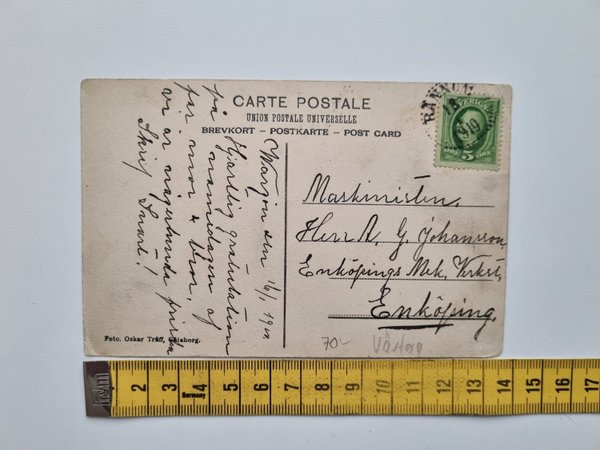 CARTE POSTALE
UNION POSTALE UNIVERSELLE
BREVKORT – POSTKARTE – POST CARD
den 16/1 1910
Hjärtlig gratulation
på namnsdagen af
far mor & bror,
vi är
Skrif Snart!
Maskinisten,
Herr A. G. Johansson
Enköpings Mek. Verkst.
Enköping.
SVERIGE
5
18
1910
Foto. Oskar Träff, Göteborg.
70:-
2 3 4 5 6 7 8 9 10 11 12 13 14 15 16 17
Germany